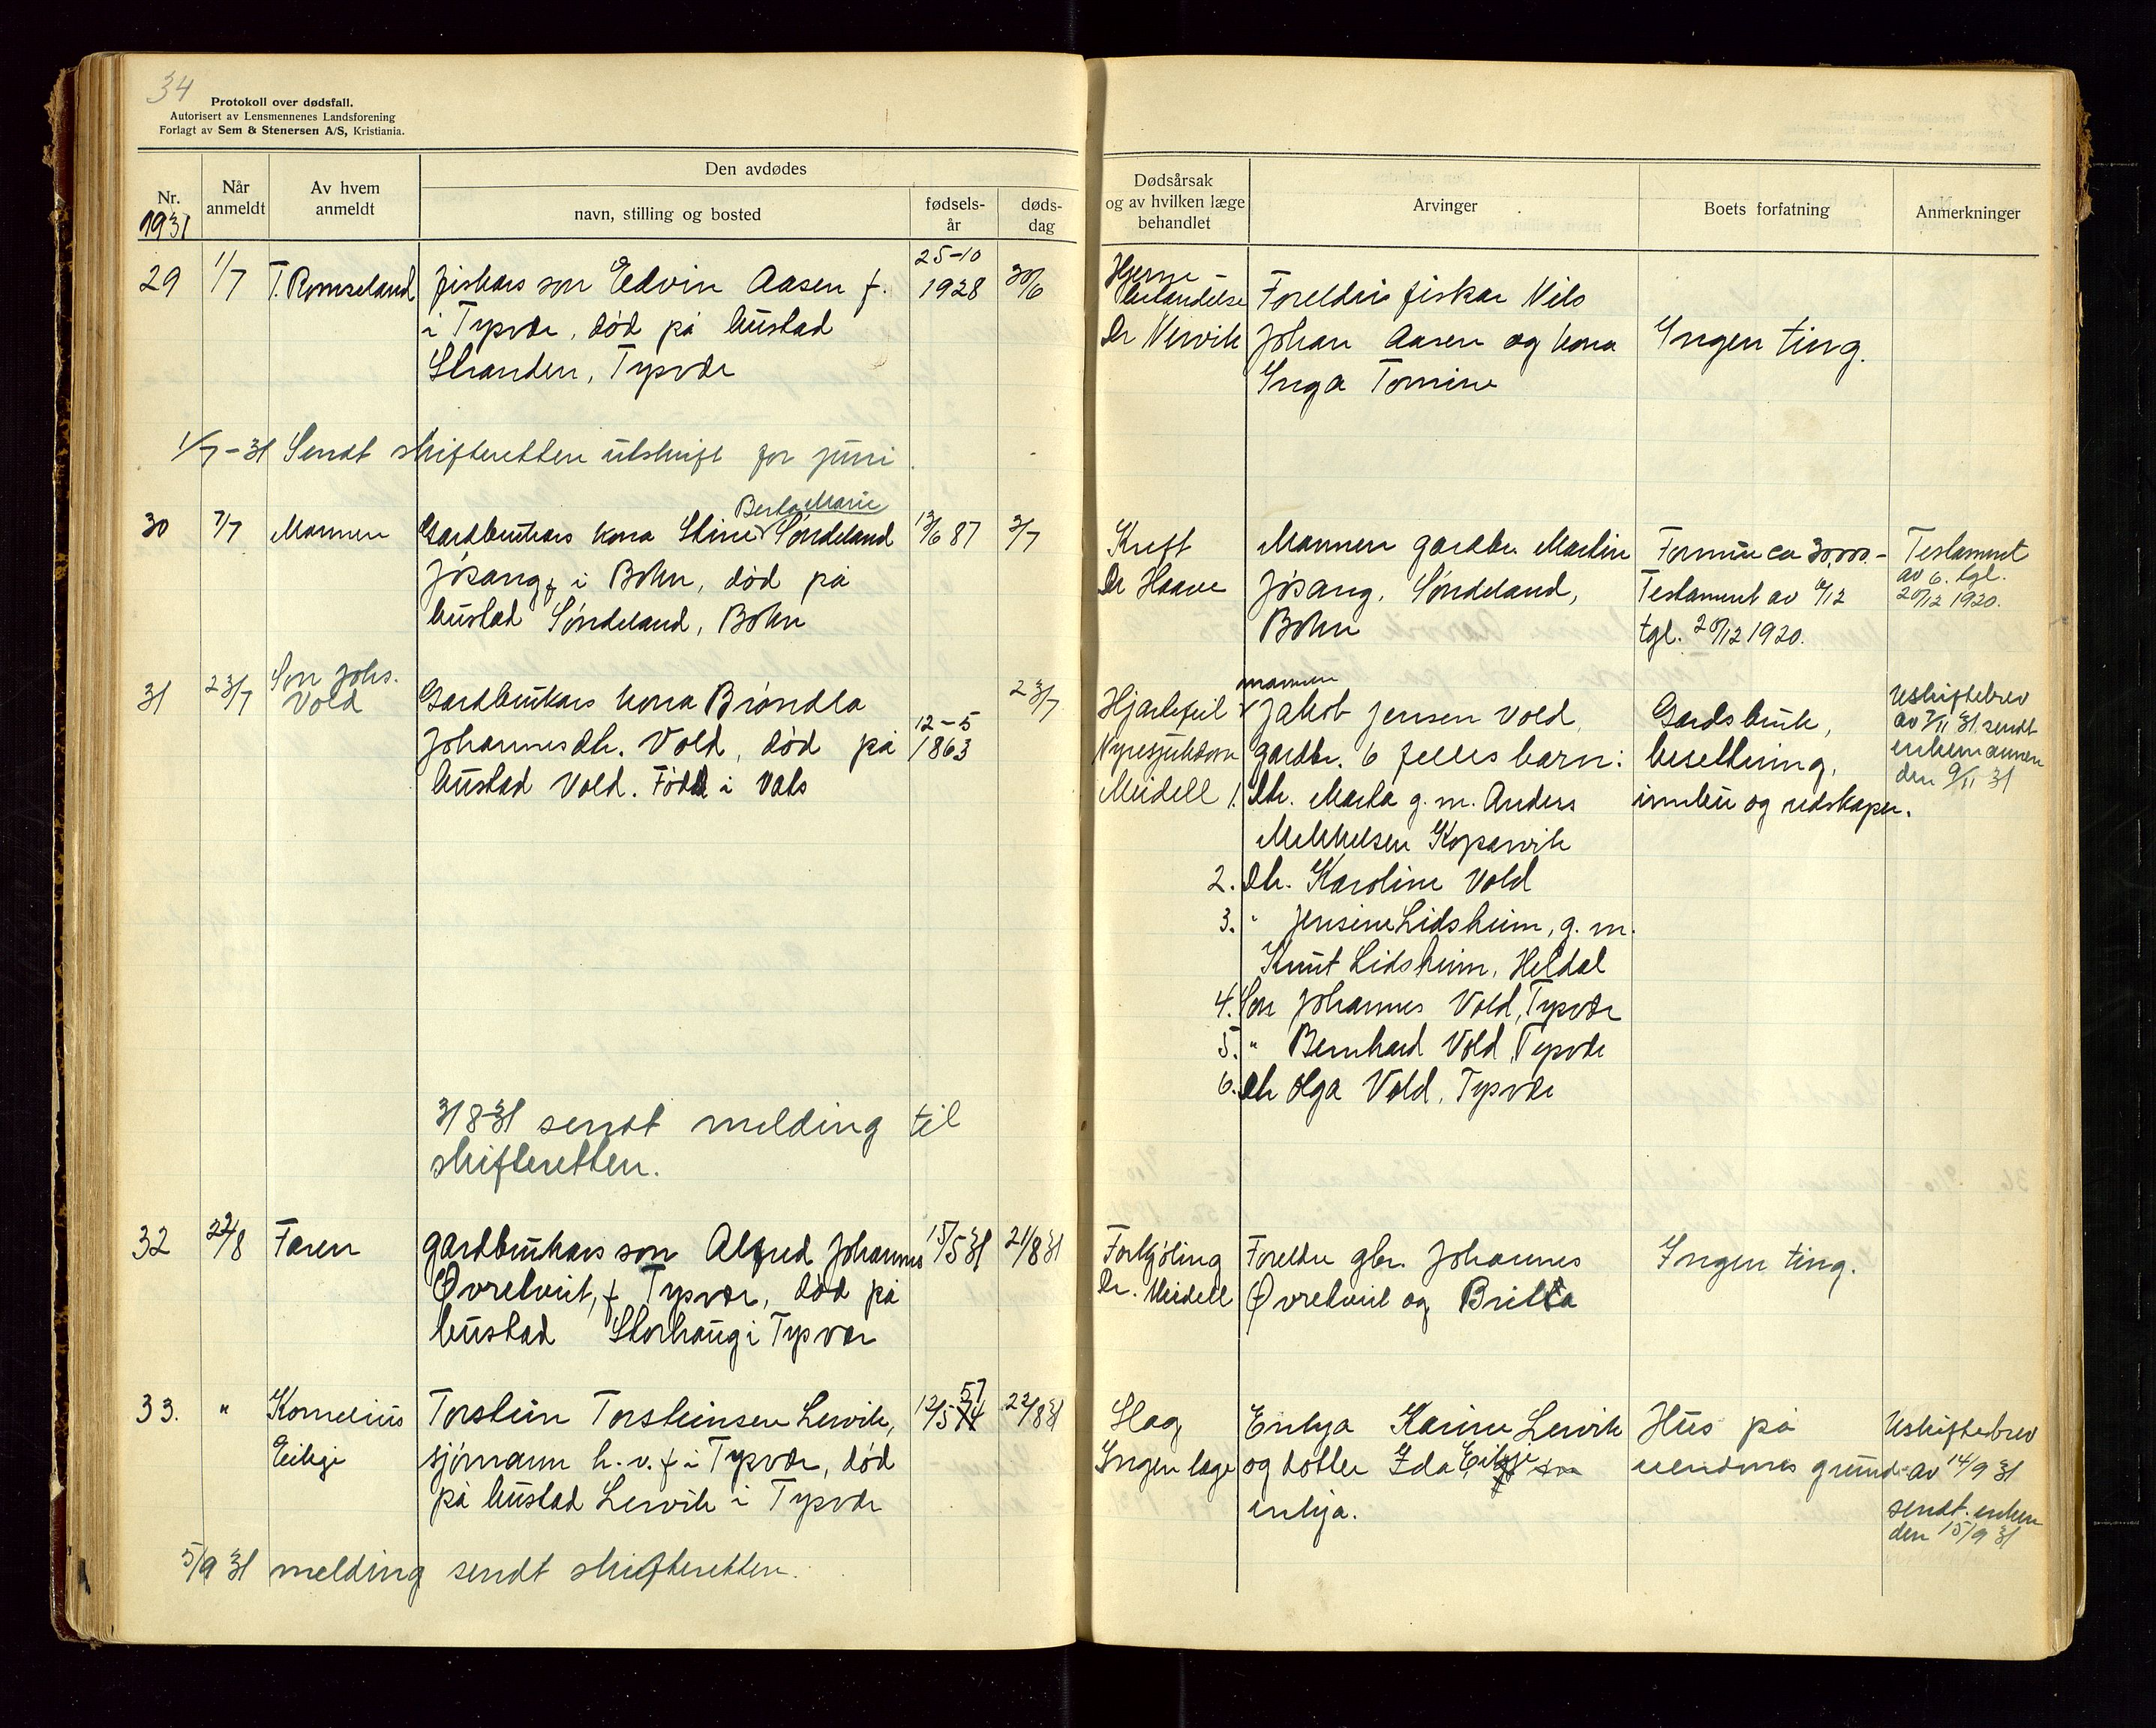 34
Protokoll over dødsfall.
Autorisert av Lensmennenes Landsforening
Forlagt av Sem & Stenersen A/S, Kristiania.
Nr.
1931
Når
anmeldt
Av hvem
anmeldt
Den avdødes
navn, stilling og bosted
fødsels-
år
døds-
dag
Dødsårsak
og av hvilken læge
behandlet
Arvinger
Boets forfatning
Anmerkninger
29 1/7 T. Romseland
fiskars son Edvin Aasen f.
i Tysvær, død på bustad
Stranden, Tysvær
25-10
1928
30/6
Hjerne
betændelse
Dr
Foreldre fiskar Nils
Johan Aasen og kona
Inga Tomine
Ingen ting.
1/7-31 Sendt skifteretten utskrift for juni
30 7/7 Mannen
Berta Marie
Gardbrukars kona Stine Søndeland
Jøsang f. i Bokn, død på
bustad Søndeland, Bokn
13/6 87
3/7
Kreft
Dr Haave
Mannen gardbr. Martin
Jøsang, Søndeland,
Bokn
Formue ca 30,000.-
Testament av 6/12
tgl. 20/12 1920.
Testament
av 6. tgl.
20/12 1920.
31 23/7
Son Johs.
Vold
Gardbrukars kona Brøndla
Johannesdtr. Vold, død på
bustad Vold. Född i Vats
12-5
1863
23/7
Hjartefeil
Nyresjukdom
Meidell
mannen
Jakob Jensen Vold,
gardbr. 6 felles barn:
1. Dtr. Marta g. m. Anders
Mikkelsen Kopervik
2. Dtr. Karoline Vold
3. " Jensine Lidsheim, g. m.
Knut Lidsheim, Heldal
4. Son Johannes Vold, Tysvær
5. " Bernhard Vold, Tysvær
6. Dtr Olga Vold, Tysvær
Gardsbruk,
besetning,
innbu og redskaper.
Uskiftebrev
av 7/11 31 sendt
enkemannen
den 9/11 31
31 8 31 sendt melding til
skifteretten.
32 22/8 Faren
gardbrukars son Alfred Johannes
Øvretveit, f. Tysvær, død på
bustad Storhaug i Tysvær
15/5 31
21/8 31
Forkjøling
Dr. Meidell
Foreldre gbr. Johannes
Øvretveit og Britta
Ingen ting.
33. " Kornelius
Eikeje
Torstein Torsteinsen Lervik,
sjømann h. v. f. i Tysvær, død
på bustad Lervik i Tysvær
57
12/5 74
22/8 31
Slag
Ingen læge
Enkja Karine Lervik
og dotter Ida Eikeje
enkja.
Hus på
eiendoms grund
Uskiftebrev
av 14/9 31
sendt enken
den 15/9 31
5/9 31 melding sendt skifteretten.